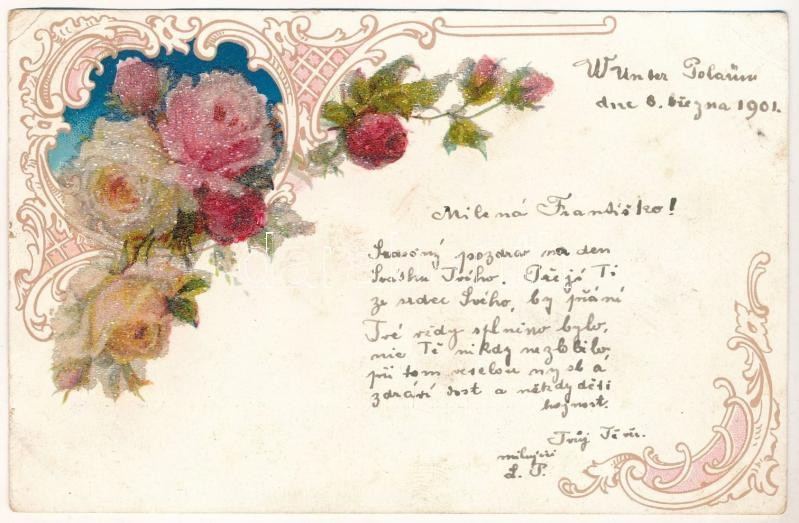 W Unter Polaun
dne 8. března 1901.
Milená Františko!
Srdečný pozdrav na den
Svátku Tvého. Přeje Ti
ze srdce Svého, by přání
Tvé vždy splnino bylo,
nic Tě nikdy nezlobilo,
při tom veselou mysl a
zdraví dost a někdy dětí
hojnost.
Tvůj Tě
milující
L. P.